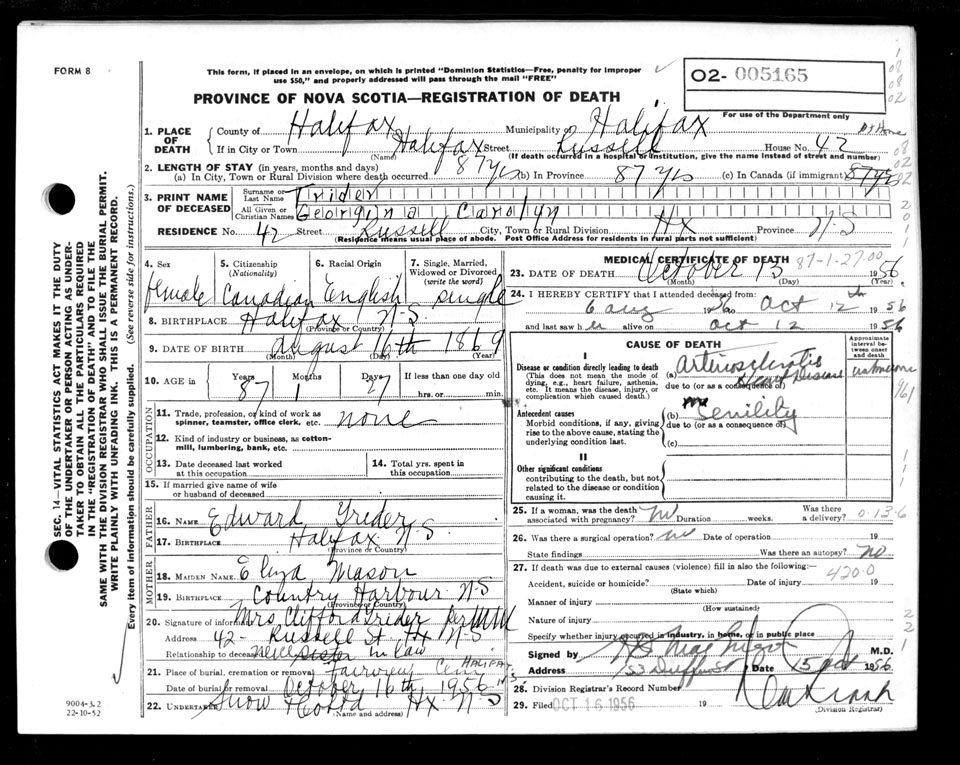 FORM 8
This form, if placed in an envelope, on which is printed "Dominion Statistics—Free, penalty for improper
use $50," and properly addressed will pass through the mail "FREE"
O2- 005165
For use of the Department only
PROVINCE OF NOVA SCOTIA—REGISTRATION OF DEATH
1. PLACE OF DEATH { County of Halifax Municipality of Halifax
At Home
If in City or Town Halifax Street Russell House No. 42
(Name) (If death occurred in a hospital or institution, give the name instead of street and number)
2. LENGTH OF STAY (in years, months and days)
(a) In City, Town or Rural Division where death occurred 87 yrs (b) In Province 87 yrs (c) In Canada (if immigrant) 87 yrs
3. PRINT NAME OF DECEASED { Surname or Last Name Trider
All Given or Christian Names Georgina Carolyn
RESIDENCE No. 42 Street Russell City, Town or Rural Division Hx Province N.S
(Residence means usual place of abode. Post Office Address for residents in rural parts not sufficient)
4. Sex female
5. Citizenship (Nationality) Canadian
6. Racial Origin English
7. Single, Married, Widowed or Divorced (write the word) single
8. BIRTHPLACE Halifax N-S.
(Province or Country)
9. DATE OF BIRTH August 16th 1869
(Month) (Day) (Year)
10. AGE in Years 87 Months 1 Days 27 If less than one day old
hrs. or min.
OCCUPATION
11. Trade, profession, or kind of work as spinner, teamster, office clerk, etc. none
12. Kind of industry or business, as cotton-mill, lumbering, bank, etc.
13. Date deceased last worked at this occupation
14. Total yrs. spent in this occupation
15. If married give name of wife or husband of deceased
FATHER
16. NAME Edward Trider
17. BIRTHPLACE Halifax N.S
(Province or Country)
MOTHER
18. MAIDEN NAME Eliza Mason
19. BIRTHPLACE Country Harbour N-S
(Province or Country)
20. Signature of informant Mrs. Clifford Trider per
Address 42- Russell St Hx N-S
Relationship to deceased sister in law
21. Place of burial, cremation or removal Fairview Cem HALIFAX N.S
Date of burial or removal October 16th 1956
22. UNDERTAKER Snow Hx N-S
(Name and address)
MEDICAL CERTIFICATE OF DEATH
87-1-27-00
23. DATE OF DEATH October 13 1956
(Month) (Day) (Year)
24. I HEREBY CERTIFY that I attended deceased from:
6 Aug 1956 to Oct 12th 1956
and last saw h er alive on Oct 12 1956
CAUSE OF DEATH
Approximate interval between onset and death
I
Disease or condition directly leading to death (a) Arteriosclerotic
(This does not mean the mode of dying, e.g., heart failure, asthenia, etc. It means the disease, injury, or complication which caused death.)
due to (or as a consequence of) Heart Disease unknown
Antecedent causes
Morbid conditions, if any, giving rise to the above cause, stating the underlying condition last.
(b) Senility
due to (or as a consequence of)
(c)
II
Other significant conditions
contributing to the death, but not related to the disease or condition causing it.
25. If a woman, was the death associated with pregnancy? No Duration weeks. Was there a delivery?
0-13-6
26. Was there a surgical operation? no Date of operation 19
State findings Was there an autopsy? No
27. If death was due to external causes (violence) fill in also the following:—
4200
Accident, suicide or homicide? Date of injury 19
(State which)
Manner of injury
(How sustained)
Nature of injury
Specify whether injury occurred in industry, in home, or in public place
Signed by M.D.
Address 53 Date 15 Oct 1956
28. Division Registrar's Record Number
29. Filed OCT 16 1956 19
(Division Registrar)
SEC. 14—VITAL STATISTICS ACT MAKES IT THE DUTY
OF THE UNDERTAKER OR PERSON ACTING AS UNDER-
TAKER TO OBTAIN ALL THE PARTICULARS REQUIRED
IN THE "REGISTRATION OF DEATH" AND TO FILE THE
SAME WITH THE DIVISION REGISTRAR WHO SHALL ISSUE THE BURIAL PERMIT.
WRITE PLAINLY WITH UNFADING INK. THIS IS A PERMANENT RECORD.
Every item of information should be carefully supplied. (See reverse side for instructions.)
9004-3.2
22-10-52